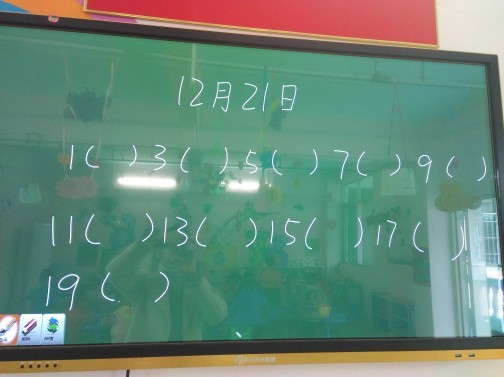 12月21日
1( )3( )5( )7( )9( )
11( )13( )15( )17( )
19( )